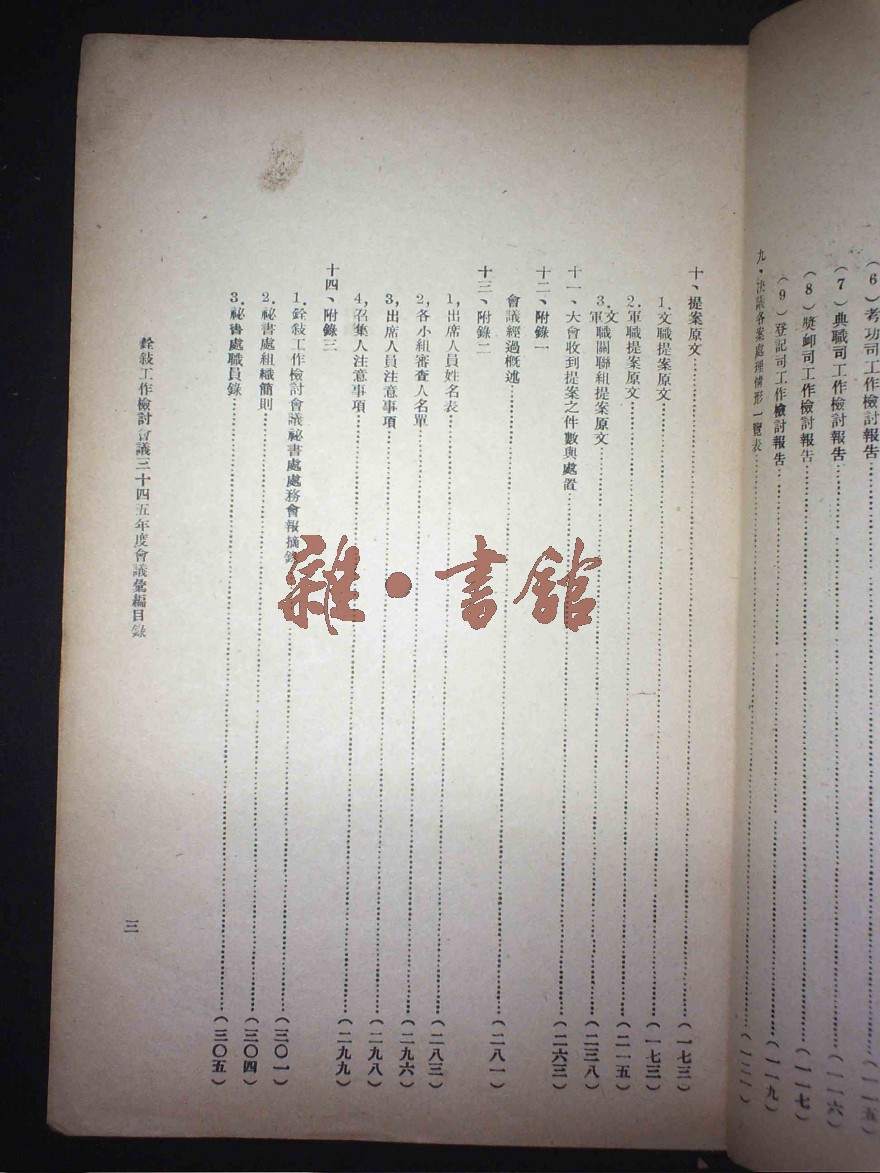 （6）考功司工作檢討報告……（一一五）
（7）典職司工作檢討報告……（一一六）
（8）奬卹司工作檢討報告……（一一七）
（9）登記司工作檢討報告……（一一九）
九、決議各案處理情形一覽表……（一二一）
十、提案原文……（一七三）
1.文職提案原文……（一七三）
2.軍職提案原文……（二一五）
3.文軍職關聯組提案原文……（二三八）
十一、大會收到提案之件數與處置……（二六三）
十二、附錄一
會議經過概述……（二八一）
十三、附錄二
1,出席人員姓名表……（二八三）
2,各小組審查人名單……（二九六）
3,出席人員注意事項……（二九八）
4,召集人注意事項……（二九九）
十四、附錄三
1.銓敍工作檢討會議祕書處處務會報摘錄……（三〇一）
2.祕書處組織簡則……（三〇四）
3.祕書處職員錄……（三〇五）
銓敍工作檢討會議三十四五年度會議彙編目錄
三
雜·書館